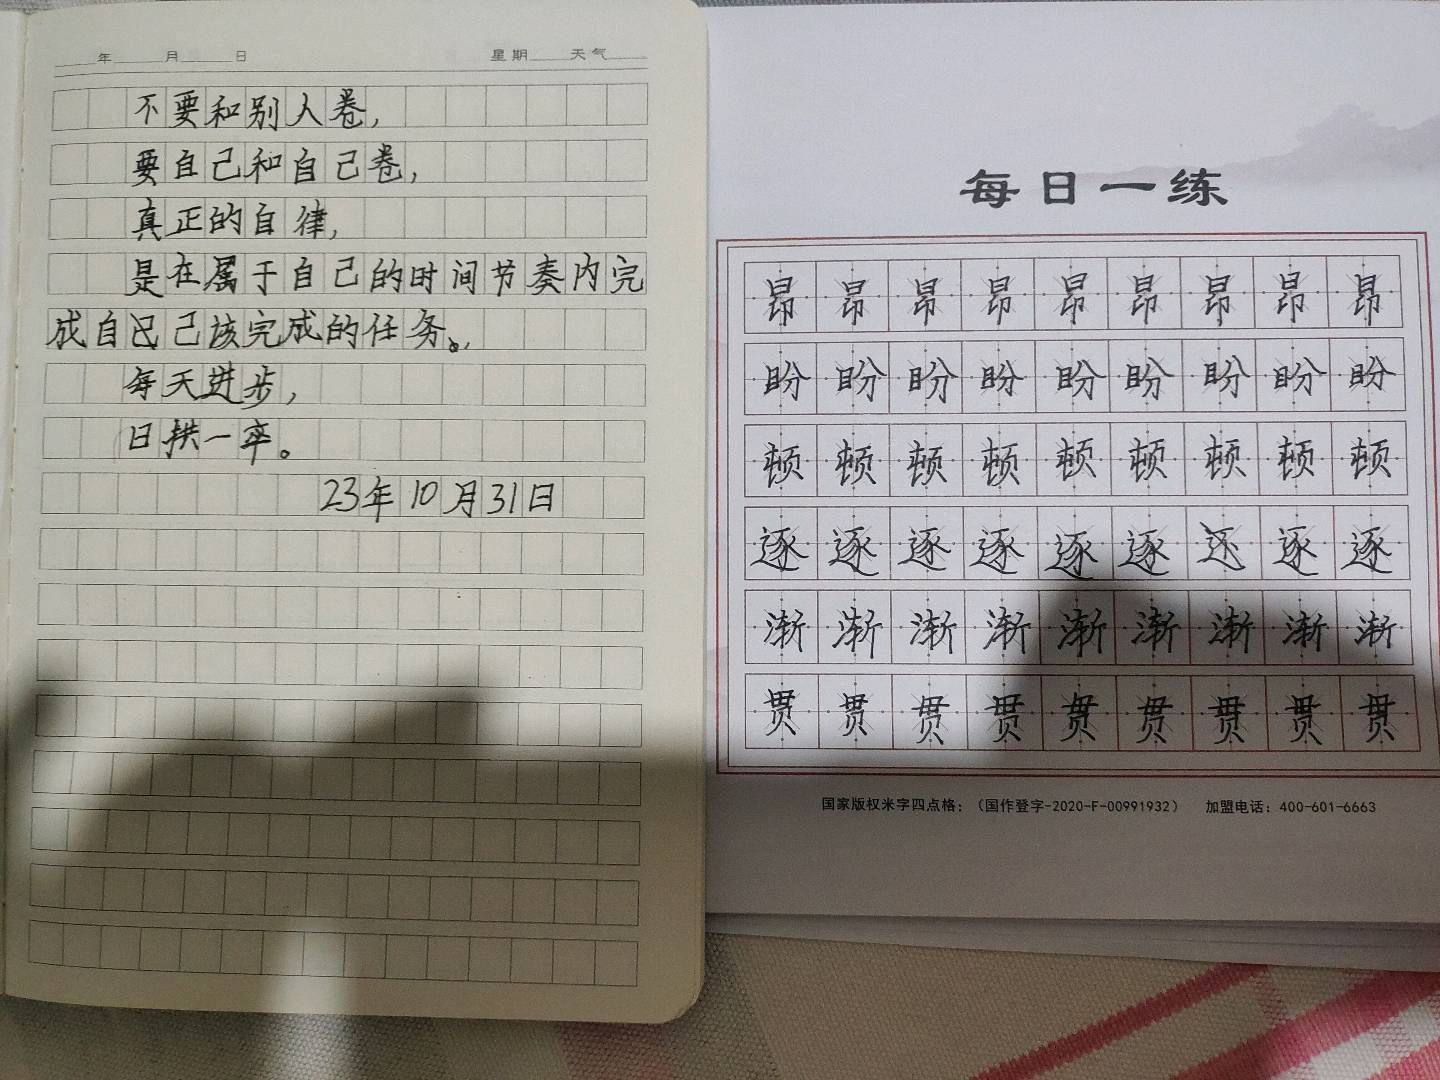 年 月 日 星期 天气
不要和别人卷,
要自己和自己卷,
真正的自律,
是在属于自己的时间节奏内完
成自己己该完成的任务。,
每天进步,
日拱一卒。
23年10月31日
每日一练
昂昂昂昂昂昂昂昂昂
盼盼盼盼盼盼盼盼盼
顿顿顿顿顿顿顿顿顿
逐逐逐逐逐逐逐逐逐
渐渐渐渐渐渐渐渐渐
贯贯贯贯贯贯贯贯贯
国家版权米字四点格:(国作登字-2020-F-00991932) 加盟电话:400-601-6663